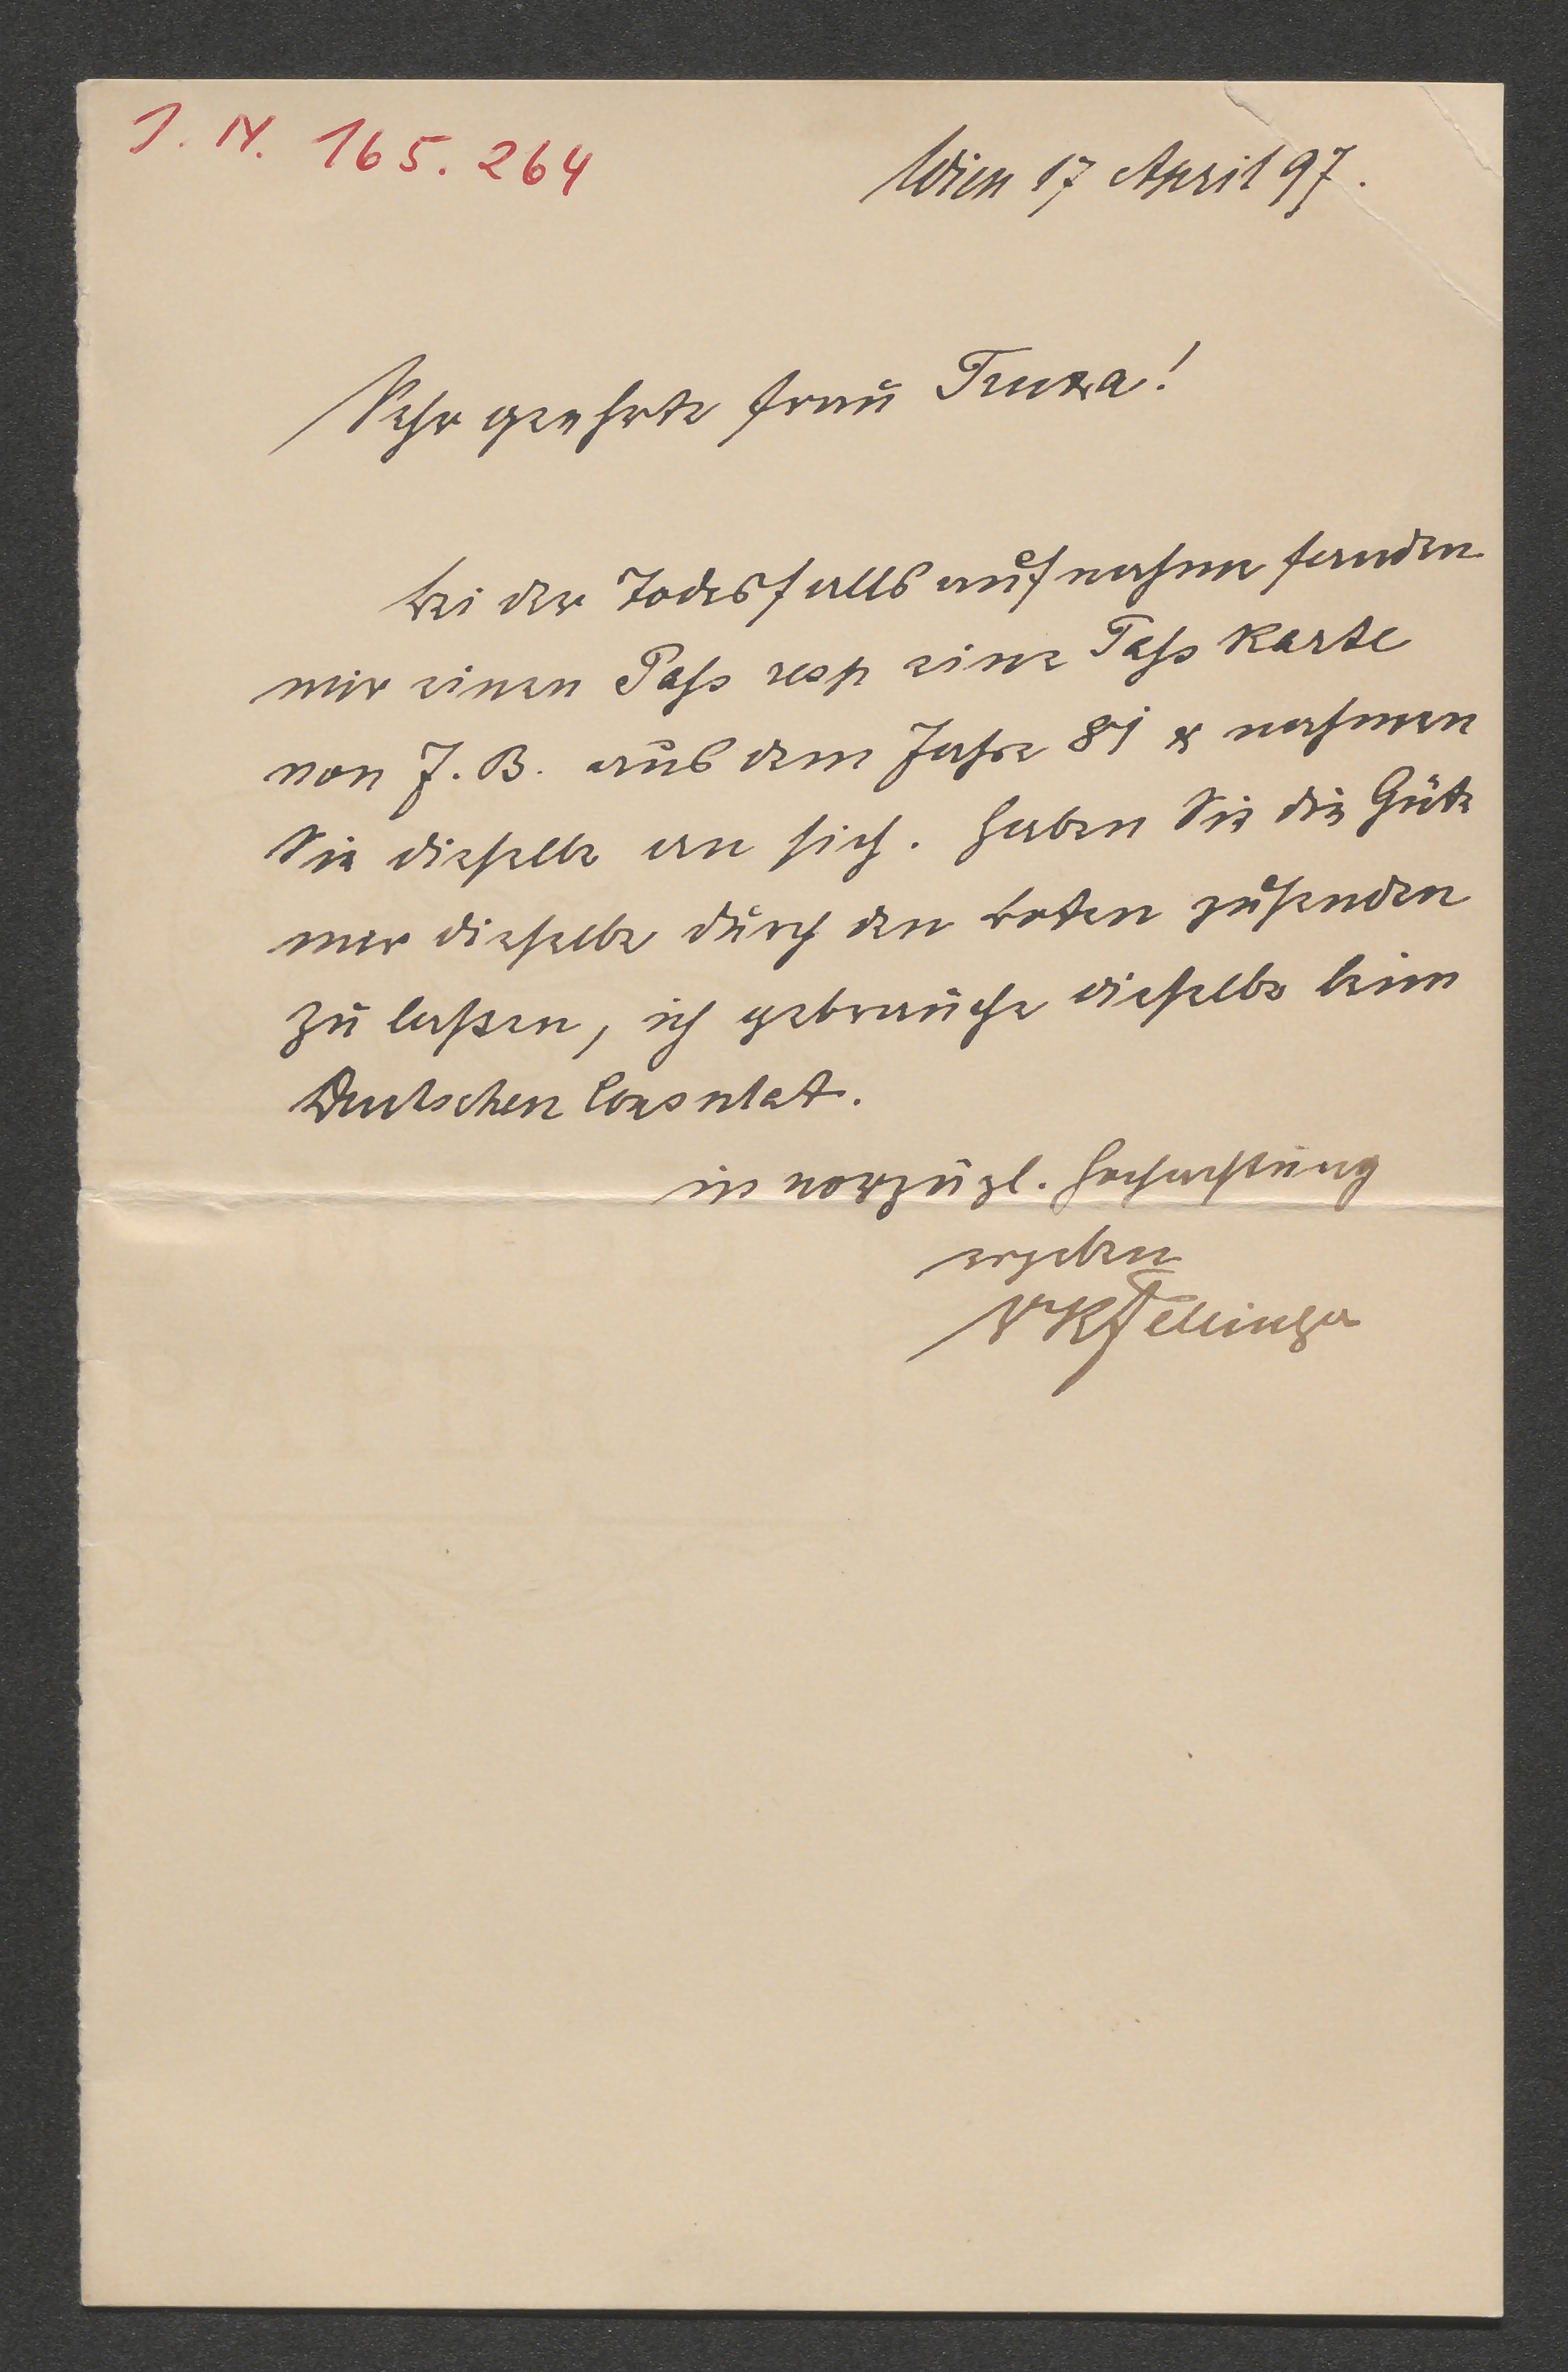 I. N. 165.264
Wien 17 April 97.
Sehr geehrte Frau Truxa!
bei der Todesfallsaufnahme fanden
wir einen Pass resp eine Pass karte
von J. B. aus dem Jahre 81 & nahmen
Sie dieselbe an sich. Haben Sie die Güte
mir dieselbe durch den boten zusenden
zu lassen, ich gebrauche dieselbe beim
Deutschen Consulat.
in vorzügl. Hochachtung
ergeben
Dr R Fellinger